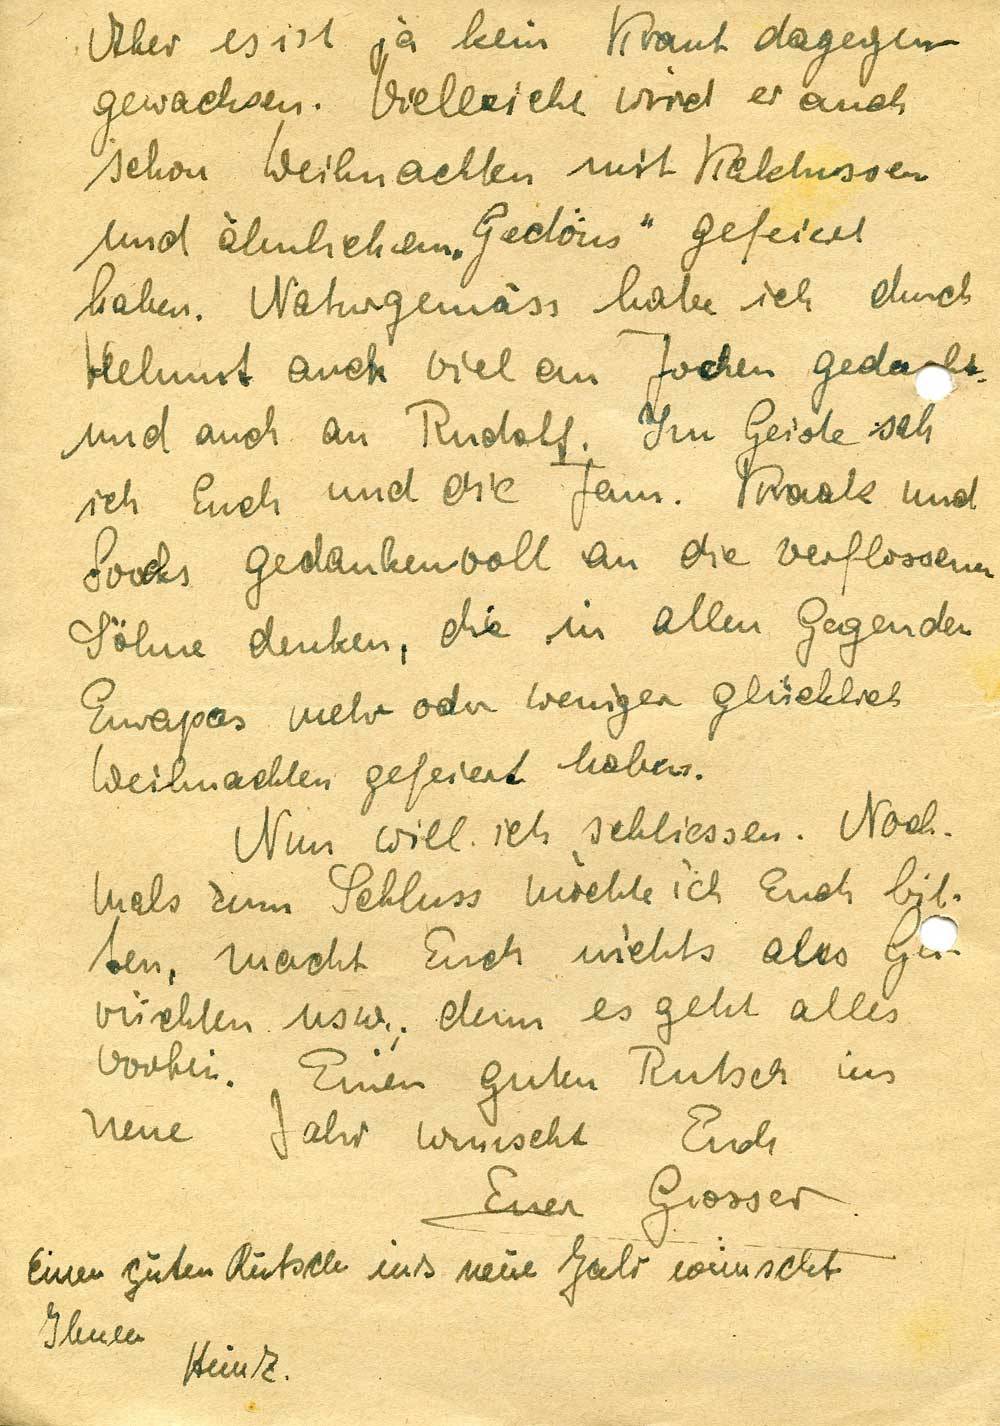 Aber es ist ja kein Kraut dagegen
gewachsen. Vielleicht wird er auch
schon Weihnachten mit Kaktussen
und ähnlichem „Gedöns“ gefeiert
haben. Naturgemäss habe ich durch
Helmut auch viel an Jochen gedacht
und auch an Rudolf. Im Geiste seh
ich Euch und die Fam. Kraak und
Socks gedankenvoll an die verflossenen
Söhne denken, die in allen Gegenden
Europas mehr oder weniger glücklich
Weihnachten gefeiert haben.
Nun will ich schliessen. Noch-
mals zum Schluss möchte ich Euch bit-
ten, macht Euch nichts aus Ge-
rüchten usw., denn es geht alles
vorbei. Einen guten Rutsch ins
neue Jahr wünscht Euch
Euer Grosser
Einen guten Rutsch ins neue Jahr wünscht
Ihnen
Heinz.